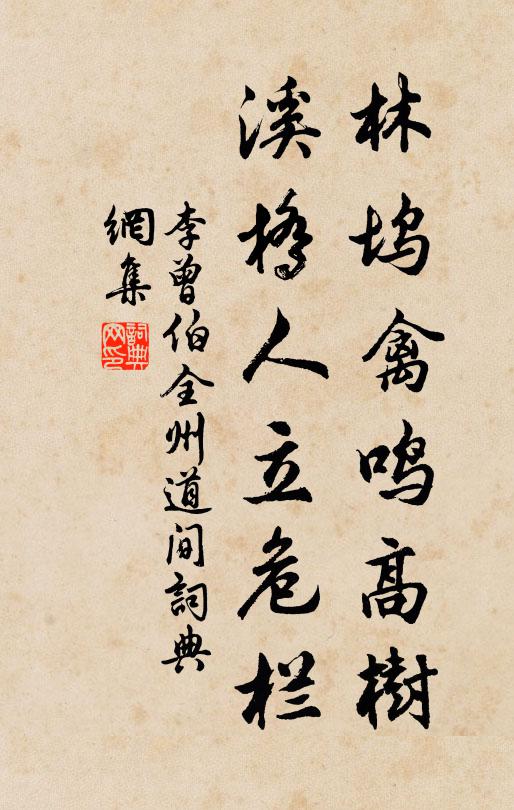 林坞禽鸣高樹
溪桥人立危栏
李曾伯全州道间詞典
網集
詞典
网印